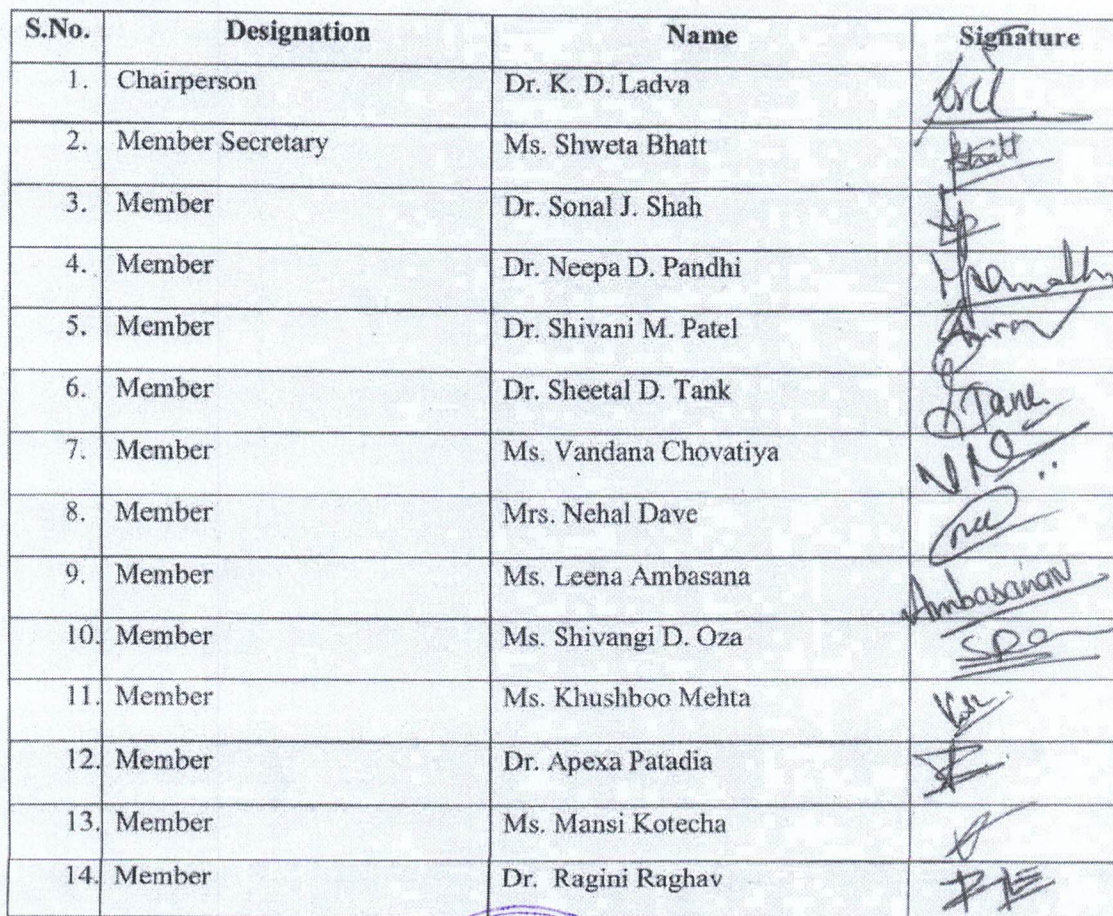 S.No. Designation Name Signature
1. Chairperson Dr. K. D. Ladva
2. Member Secretary Ms. Shweta Bhatt
3. Member Dr. Sonal J. Shah
4. Member Dr. Neepa D. Pandhi
5. Member Dr. Shivani M. Patel
6. Member Dr. Sheetal D. Tank
7. Member Ms. Vandana Chovatiya
8. Member Mrs. Nehal Dave
9. Member Ms. Leena Ambasana
10. Member Ms. Shivangi D. Oza
11. Member Ms. Khushboo Mehta
12. Member Dr. Apexa Patadia
13. Member Ms. Mansi Kotecha
14. Member Dr. Ragini Raghav